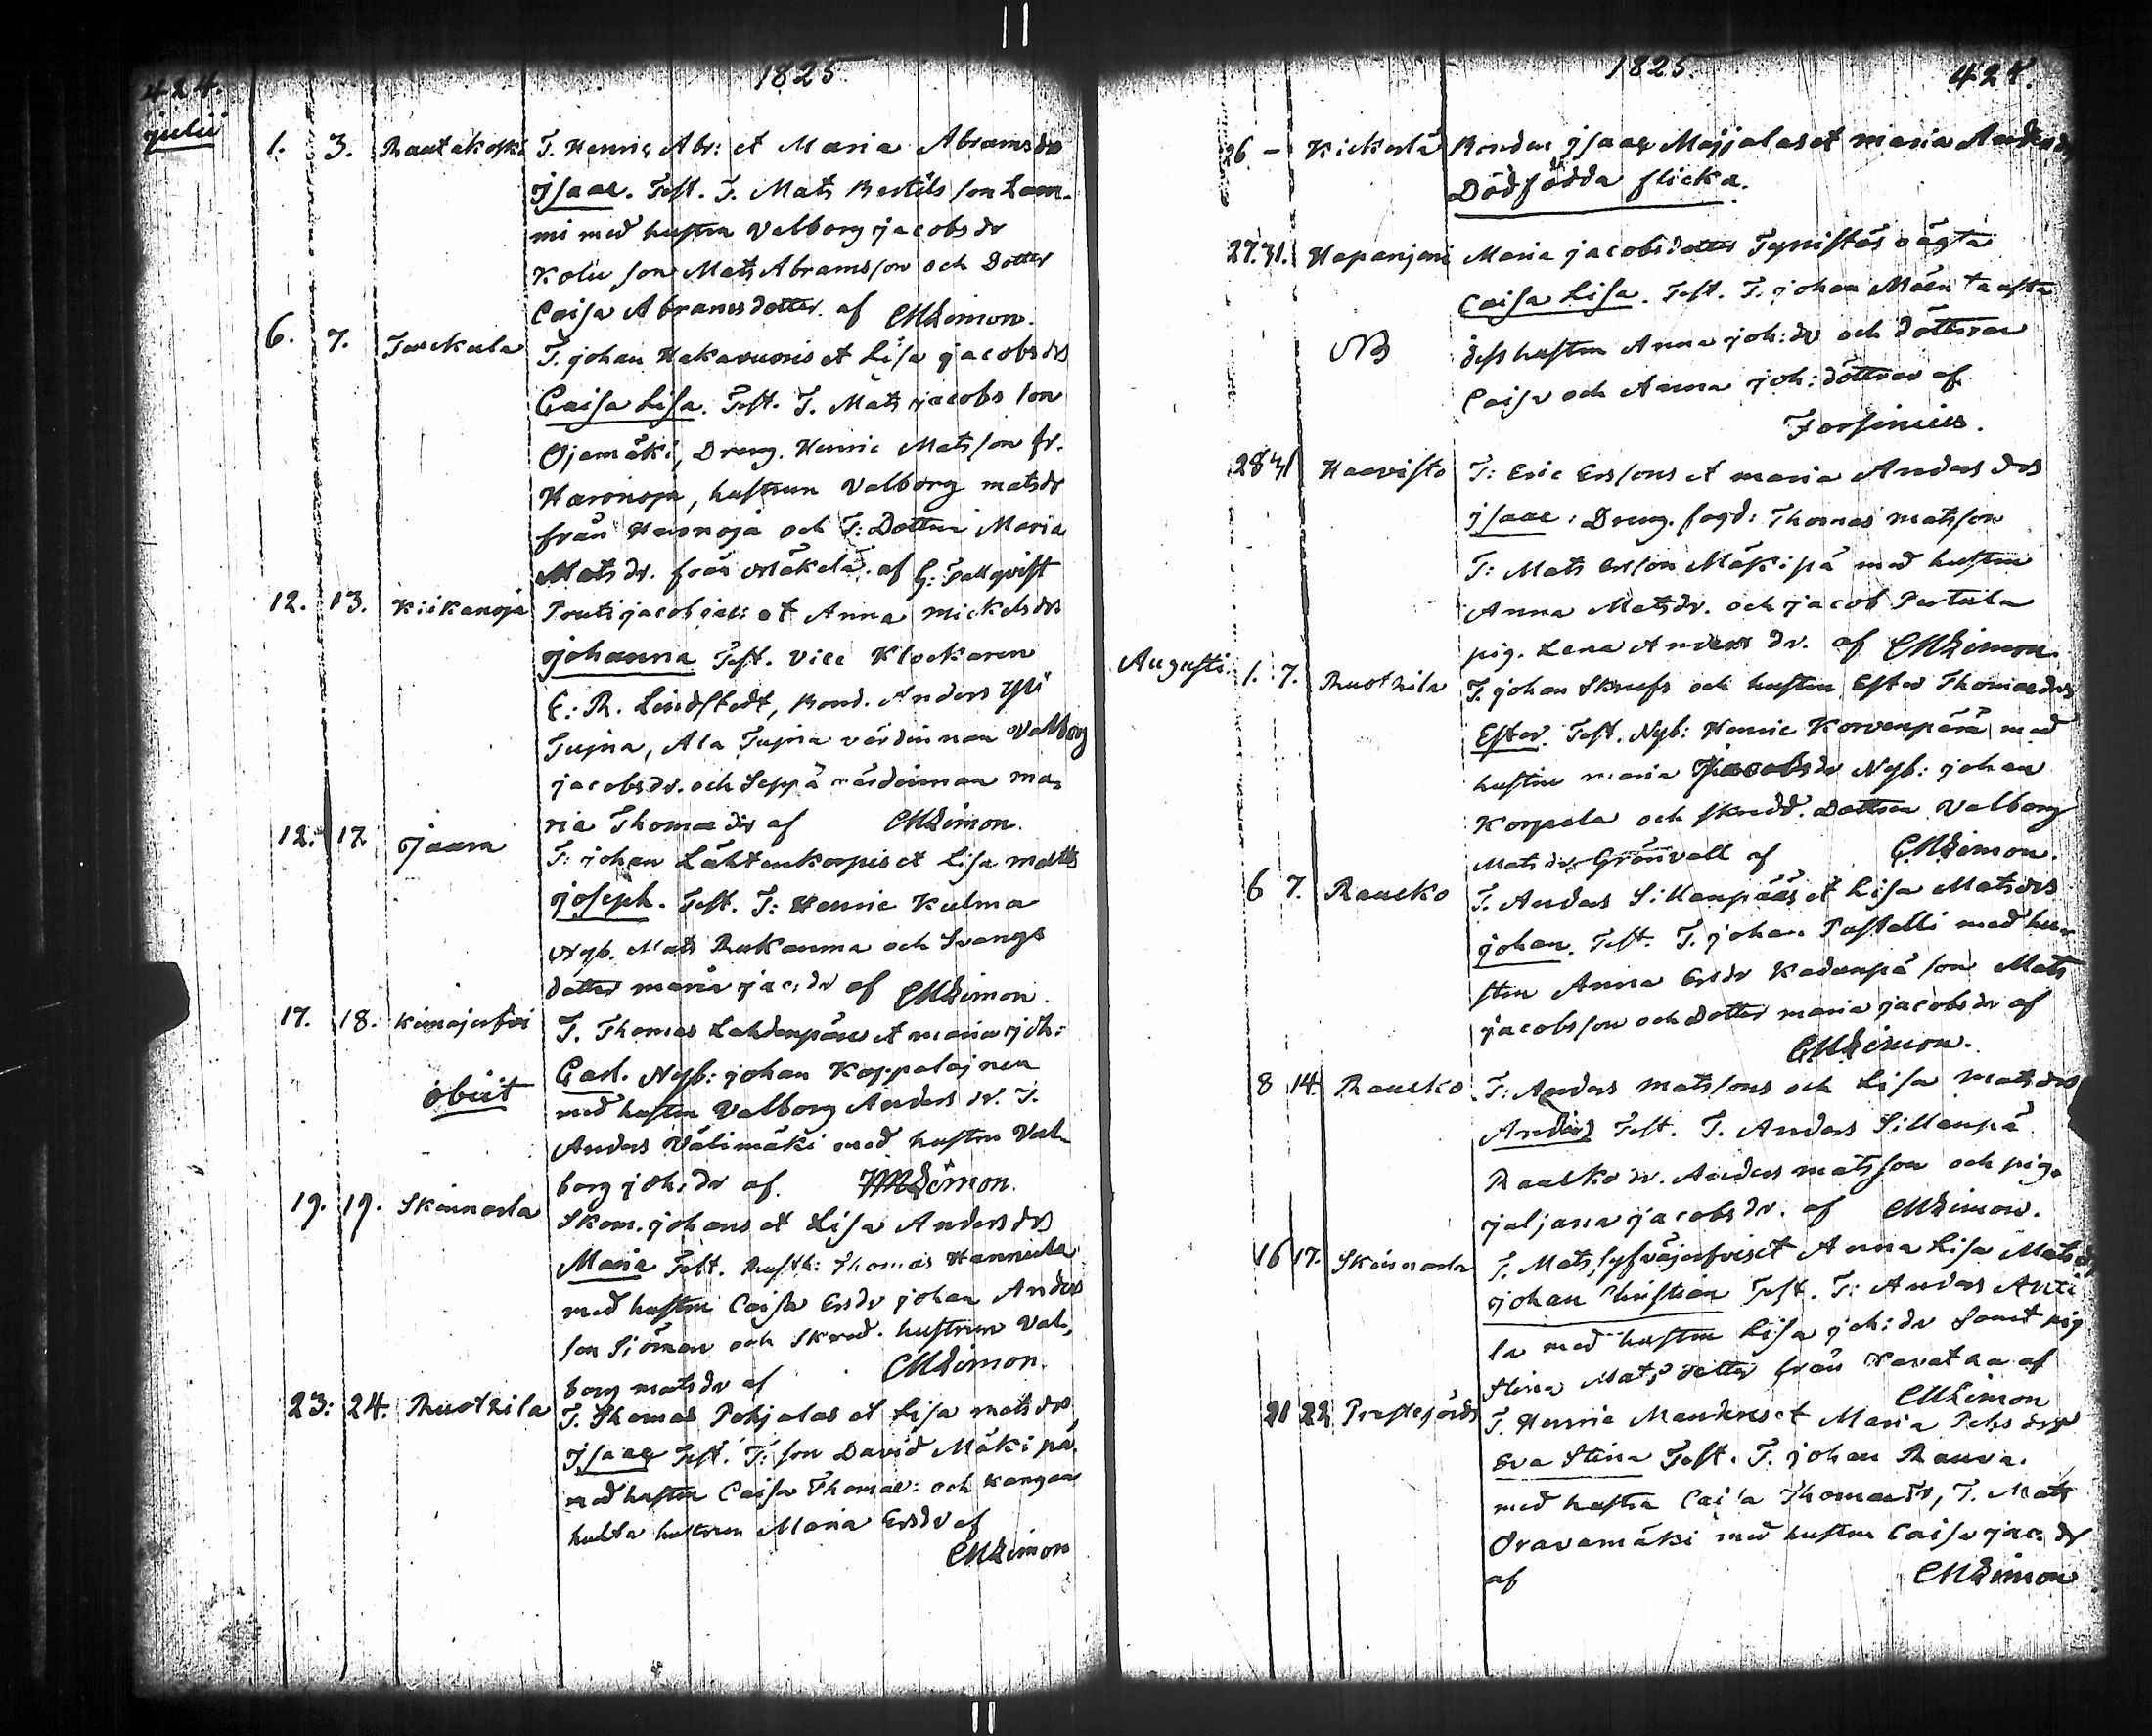 424.
1825
julii
1. 3. Rautakoski T. Henric Abr: et Maria Abramsdrs
Jsaac. Test. T. Mats Bertils son Lam-
mi med hustru Valborg jacobsdr
Kolu son Mats Abramsson och Dotter
Caisa Abramsdotter. af CMLimon.
6. 7. Torckula T. johan Hakavuoris et Lisa jacobsdrs
Caisa Lisa. Test. T. Mats jacobs son
Ojamäki, Dreng. Henric Matsson fr.
Haronoja, hustrun Valborg matsdr
från Haronoja och T: Dottren Maria
Matsdr. från Mäkelä. af G: Fallqvist
12. 13. Kiikanoja Pouti jacob jac: et Anna mickelsdrs
johanna Test. vice Klockaren
E: R. Lindstedt, Bond. Anders Yli
Tupna, Ala Tupna värdinnan Valborg
jacobsdr. och Seppä värdinnan ma-
ria Thomaedr af CMLimon.
12. 17. Jaara T: johan Lähtenkorpis et Lisa matts
joseph. Test. T: Henric Kulma
Nyb. Mats Rukanma och Svangs
dotter maria jac:dr af CMLimon.
17. 18. Kinajerfvi T. Thomas Lahdenpäns et maria joh:
Carl. Nyb: johan Koppalajnen
obiit
med hustru Valborg Anders dr. T.
Anders Välimäki med hustru Val-
borg joh:dr af. CMLimon.
19. 19. Skinnarla Skom. johans et Lisa Andersdrs
Maria Test. Rusth: Thomas Hannula
med hustru Caisa Ersdr johan Anders
son Siöman och Skred. hustrun Val-
borg matsdr af CMLimon.
23: 24. Ruothila T. Thomas Pohjalas et Lisa matsdrs,
Jsaac Test. T: son David Mäkipä
med hustru Caisa Thomae: och Kangas
huhta hustrun Maria Ersdr af
CMLimon
1825.
425.
26 – Kickerlä Bonden jsaac Majjalas et maria Andersdr
Dödfödda flicka.
27. 31. Hapanjari Maria jacobsdotters Tynistös oägta
Caisa Lisa. Test. T. johan Mäentausta
NB dess hustru Anna joh:dr och döttrar
Caisa och Anna joh: döttrar af
Forsinius.
28 31 Haavisto T: Eric Erssons et maria Andersdrs
jsaac: Dreng. sogd: Thomas matsson
T: Mats Ersson Mäkipä med hustru
Anna Matsdr. och jacob Pertula
pig. Lena Anders dr. af CMLimon.
Augusti. 1. 7. Ruothila T. johan Skrufs och hustru Ester Thomaedrs
Ester. Test. Nyb: Henric Korvenpärä med
hustru maria Jacobsdr Nyb: johan
Korpela och skredd. Dottren Valborg
Matsdr Grönvall af CMLimon.
6 7. Rausko T. Anders Sillanpääs et Lisa Matsdrs
johan. Test. T. johan Pastelli med hu-
stru Anna Ersdr Kadenpä son Mats
jacobsson och Dotter maria jacobsdr af
CMLimon.
8 14. Rausko T: Anders matssons och Lisa matsdrs
Anders Test. T. Anders Sillanpä
Rausko dr. Anders matsson och pig.
juljana jacobsdr. af CMLimon.
16 17. Skinnarla T. Mats Syfväjerfvis et Anna Lisa Matsdr
johan Christian Test. T: Anders Anti
la med hustru Lisa joh:dr samt pig
Stina Mats dotter från af
CMLimon
21 22. Prestegårds T. Henric Manders et Maria Pehrsdrs
Eva Stina Test. T. johan Rauva.
med hustru Caisa Thomaedr, T. Mats
Oravamäki med hustru Caisa jac. dr
af CMLimon